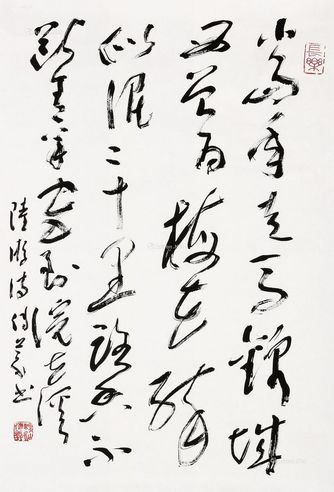 長樂
當年走馬錦城
西曾為梅花醉
似泥二十里路香不
斷青羊宮到浣花溪
陸游詩 書